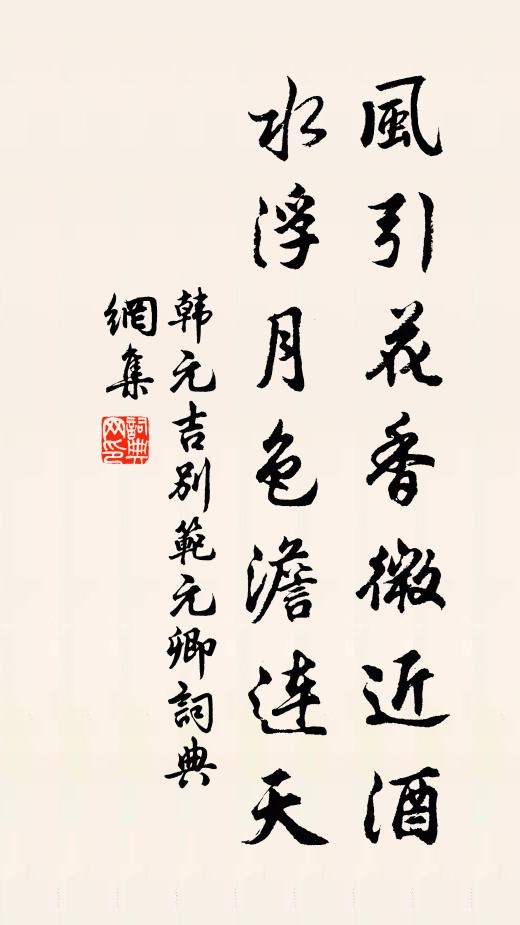 風引花香微近酒
水浮月色澹連天
韩元吉别範元卿詞典
網集
詞典
网印